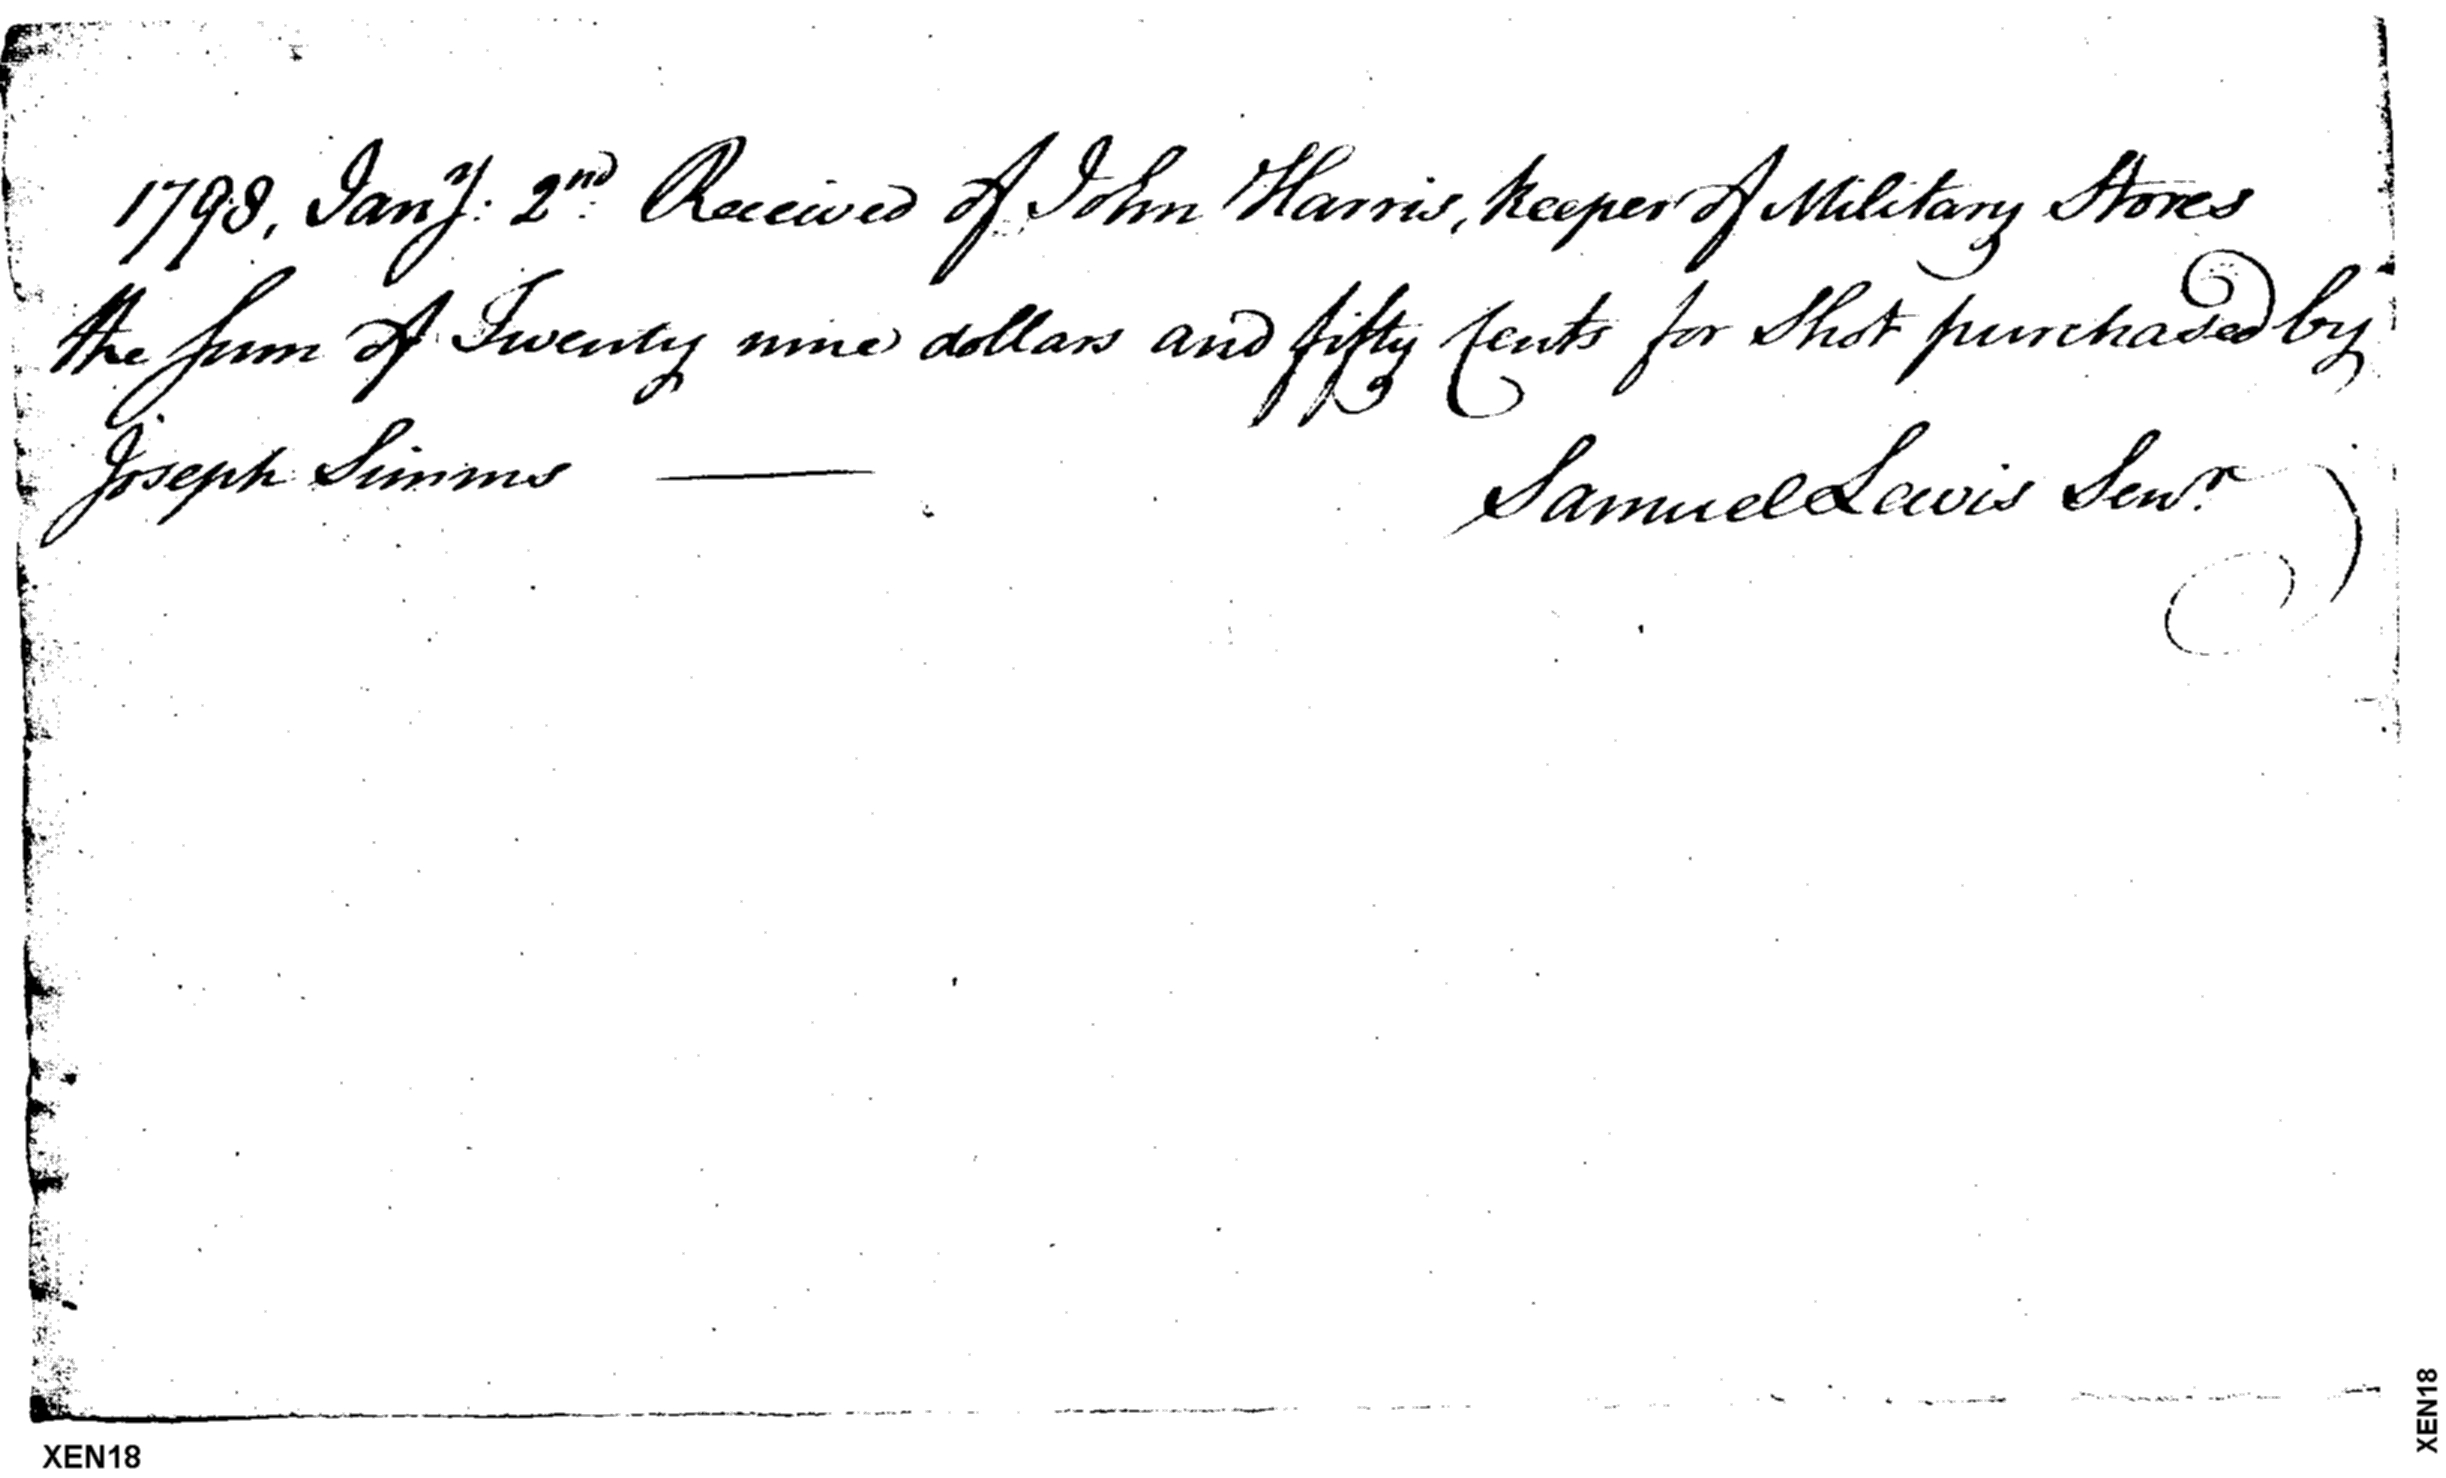 1798, Jany. 2nd Received of John Harris, keeper of Military Stores
the sum of Twenty nine dollars and fifty Cents for Shot purchased by
Joseph Simms ——
Samuel Lewis Senr.
XEN18
XEN18